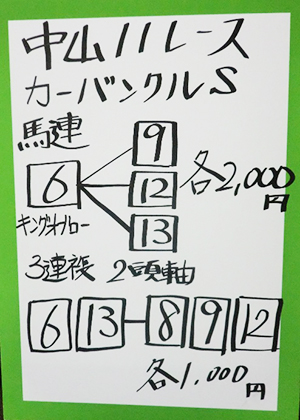 中山11レース
カーバンクルS
馬連
6 9 12 13 各2,000円
キングオブロー
3連複 2頭軸
6 13-8 9 12
各1,000円